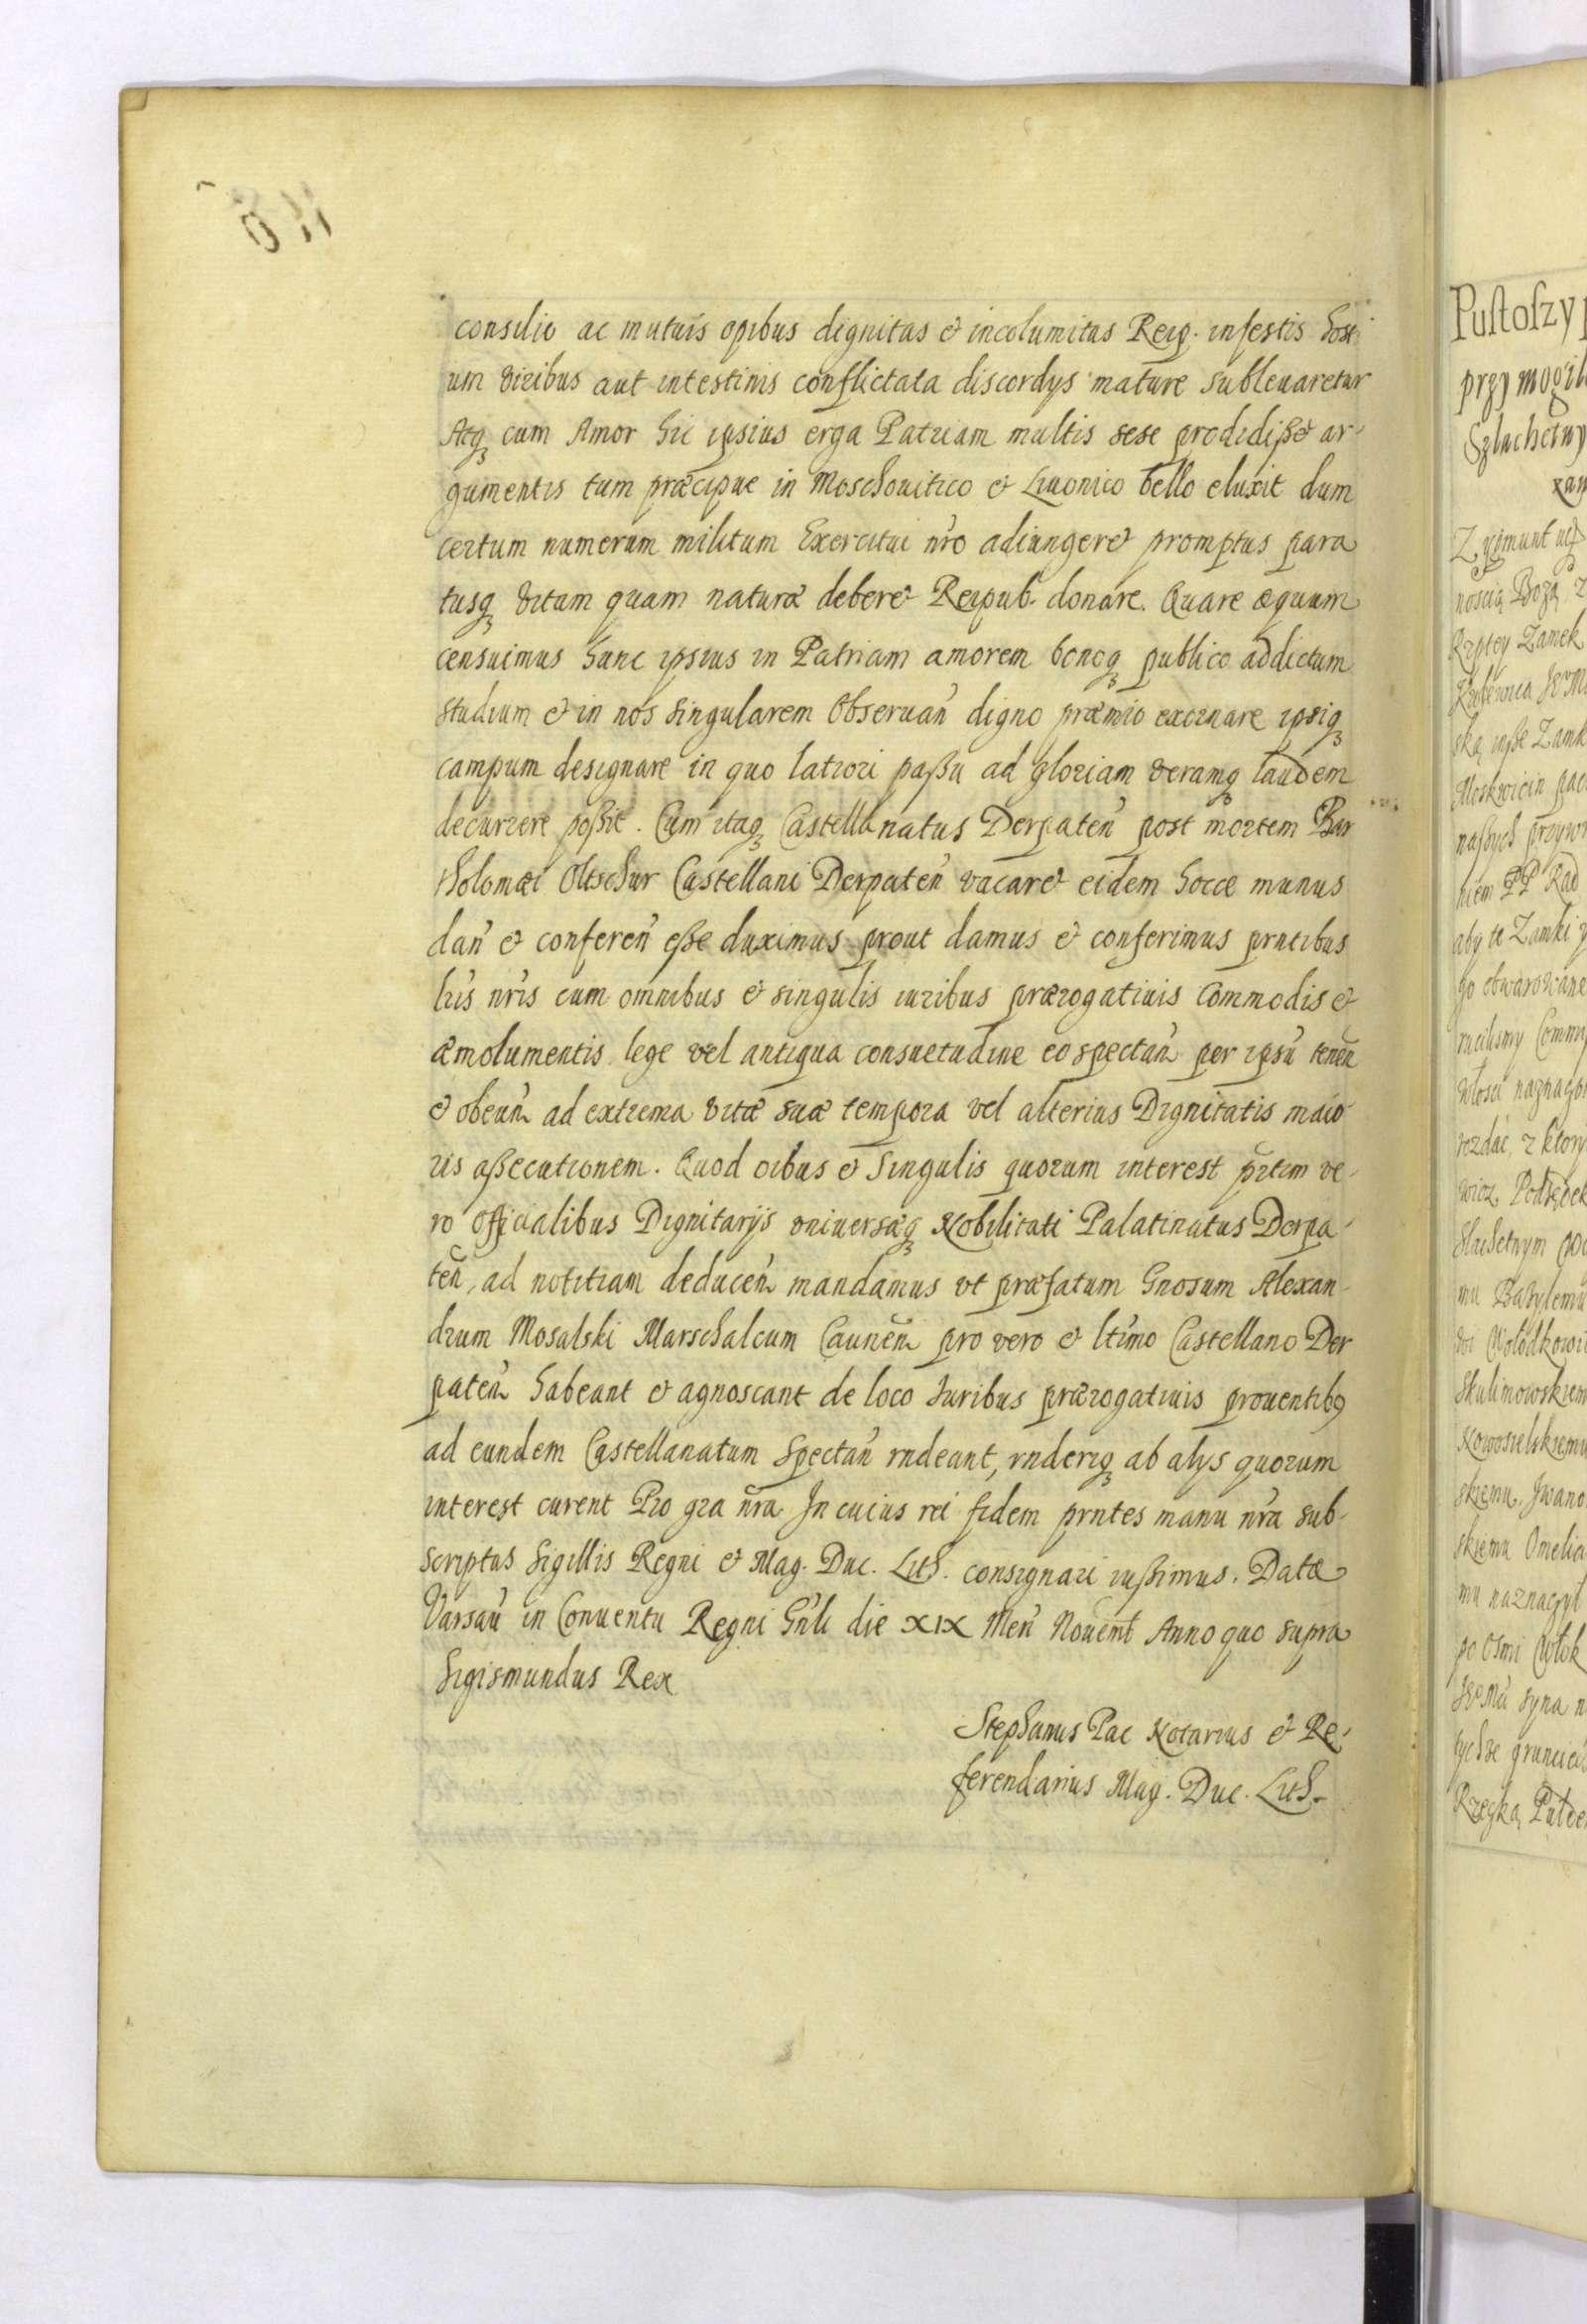 consilio ac mutuis opibus dignitas et incolumitas Reip. infestis hosti
um viribus aut intestinis conflictata discordys mature subleuaretur
Atq3 cum Amor hic ipsius erga Patriam multis sese prodidiße ar-
gumentis tum præcipue in Moschouitico et Liuonico bello eluxit dum
certum numerum militum Exercitui nr̃o adiungere promptus para
tusq3 vitam quam naturæ debere Reipub. donare. Quare æquum
censuimus hunc ipsius in Patriam amorem bonoq3 publico addictum
studium et in nos singularem Obseruañ digno præmio exornare ipsiq3
campum designare in quo latiori paßu ad gloriam veramq3 laudem
decurrere poßit. Cum itaq3 Castellanatus Derpateñ post mortem Bar
tholomæi Oltschur Castellani Derpateñ vacaret eidem hocce munus
dañ et confereñ eße duximus prout damus et conferimus prntibus
lr̃is nr̃is cum omnibus et singulis iuribus prærogatiuis Commodis et
æmolumentis lege vel antiqua consuetudine eo spectañ per ipsũ teneñ
et obeuñ ad extrema vitæ suæ tempora vel alterius Dignitatis maio
ris aßecutionem. Quod oibus et Singulis quorum interest pr̃tim ve-
ro Officialibus Dignitarijs vniuersæq3 Nobilitati Palatinatus Derpa-
teñ, ad notitiam deduceñ mandamus vt præfatum Gnosum Alexan-
drum Mosalski Marschalcum Cauneñ pro vero et ltimo Castellano Der
pateñ habeant et agnoscant de loco Juribus prærogatiuis prouentibꝰ
ad eundem Castellanatum Spectañ rndeant, rnderiq3 ab alys quorum
interest curent Pro gra nr̃a. In cuius rei fidem prntes manu nr̃a sub-
scriptas Sigillis Regni et Mag. Duc. Lith. consignari iußimus. Datæ
Varsaũ in Conuentu Regni Gñli die XIX Meñ Nouemb Anno quo supra
Sigismundus Rex
Stephanus Pac Notarius et Re-
ferendarius Mag. Duc. Lith.
Pustoszy
przy mogil
Szlachetny
Zygmunt
Bożą
Zamek
Zamk
Moskwicin
naßych
niem PP Rad
aby te Zamki
go obwarowane
Włoki
z ktory
mu
Wołodkowi
Skulimowskiem
Nowosielskiemu
skiemu. Iwano
skiemu Omelia
mu naznaczyl
po Osmi Włok
syna